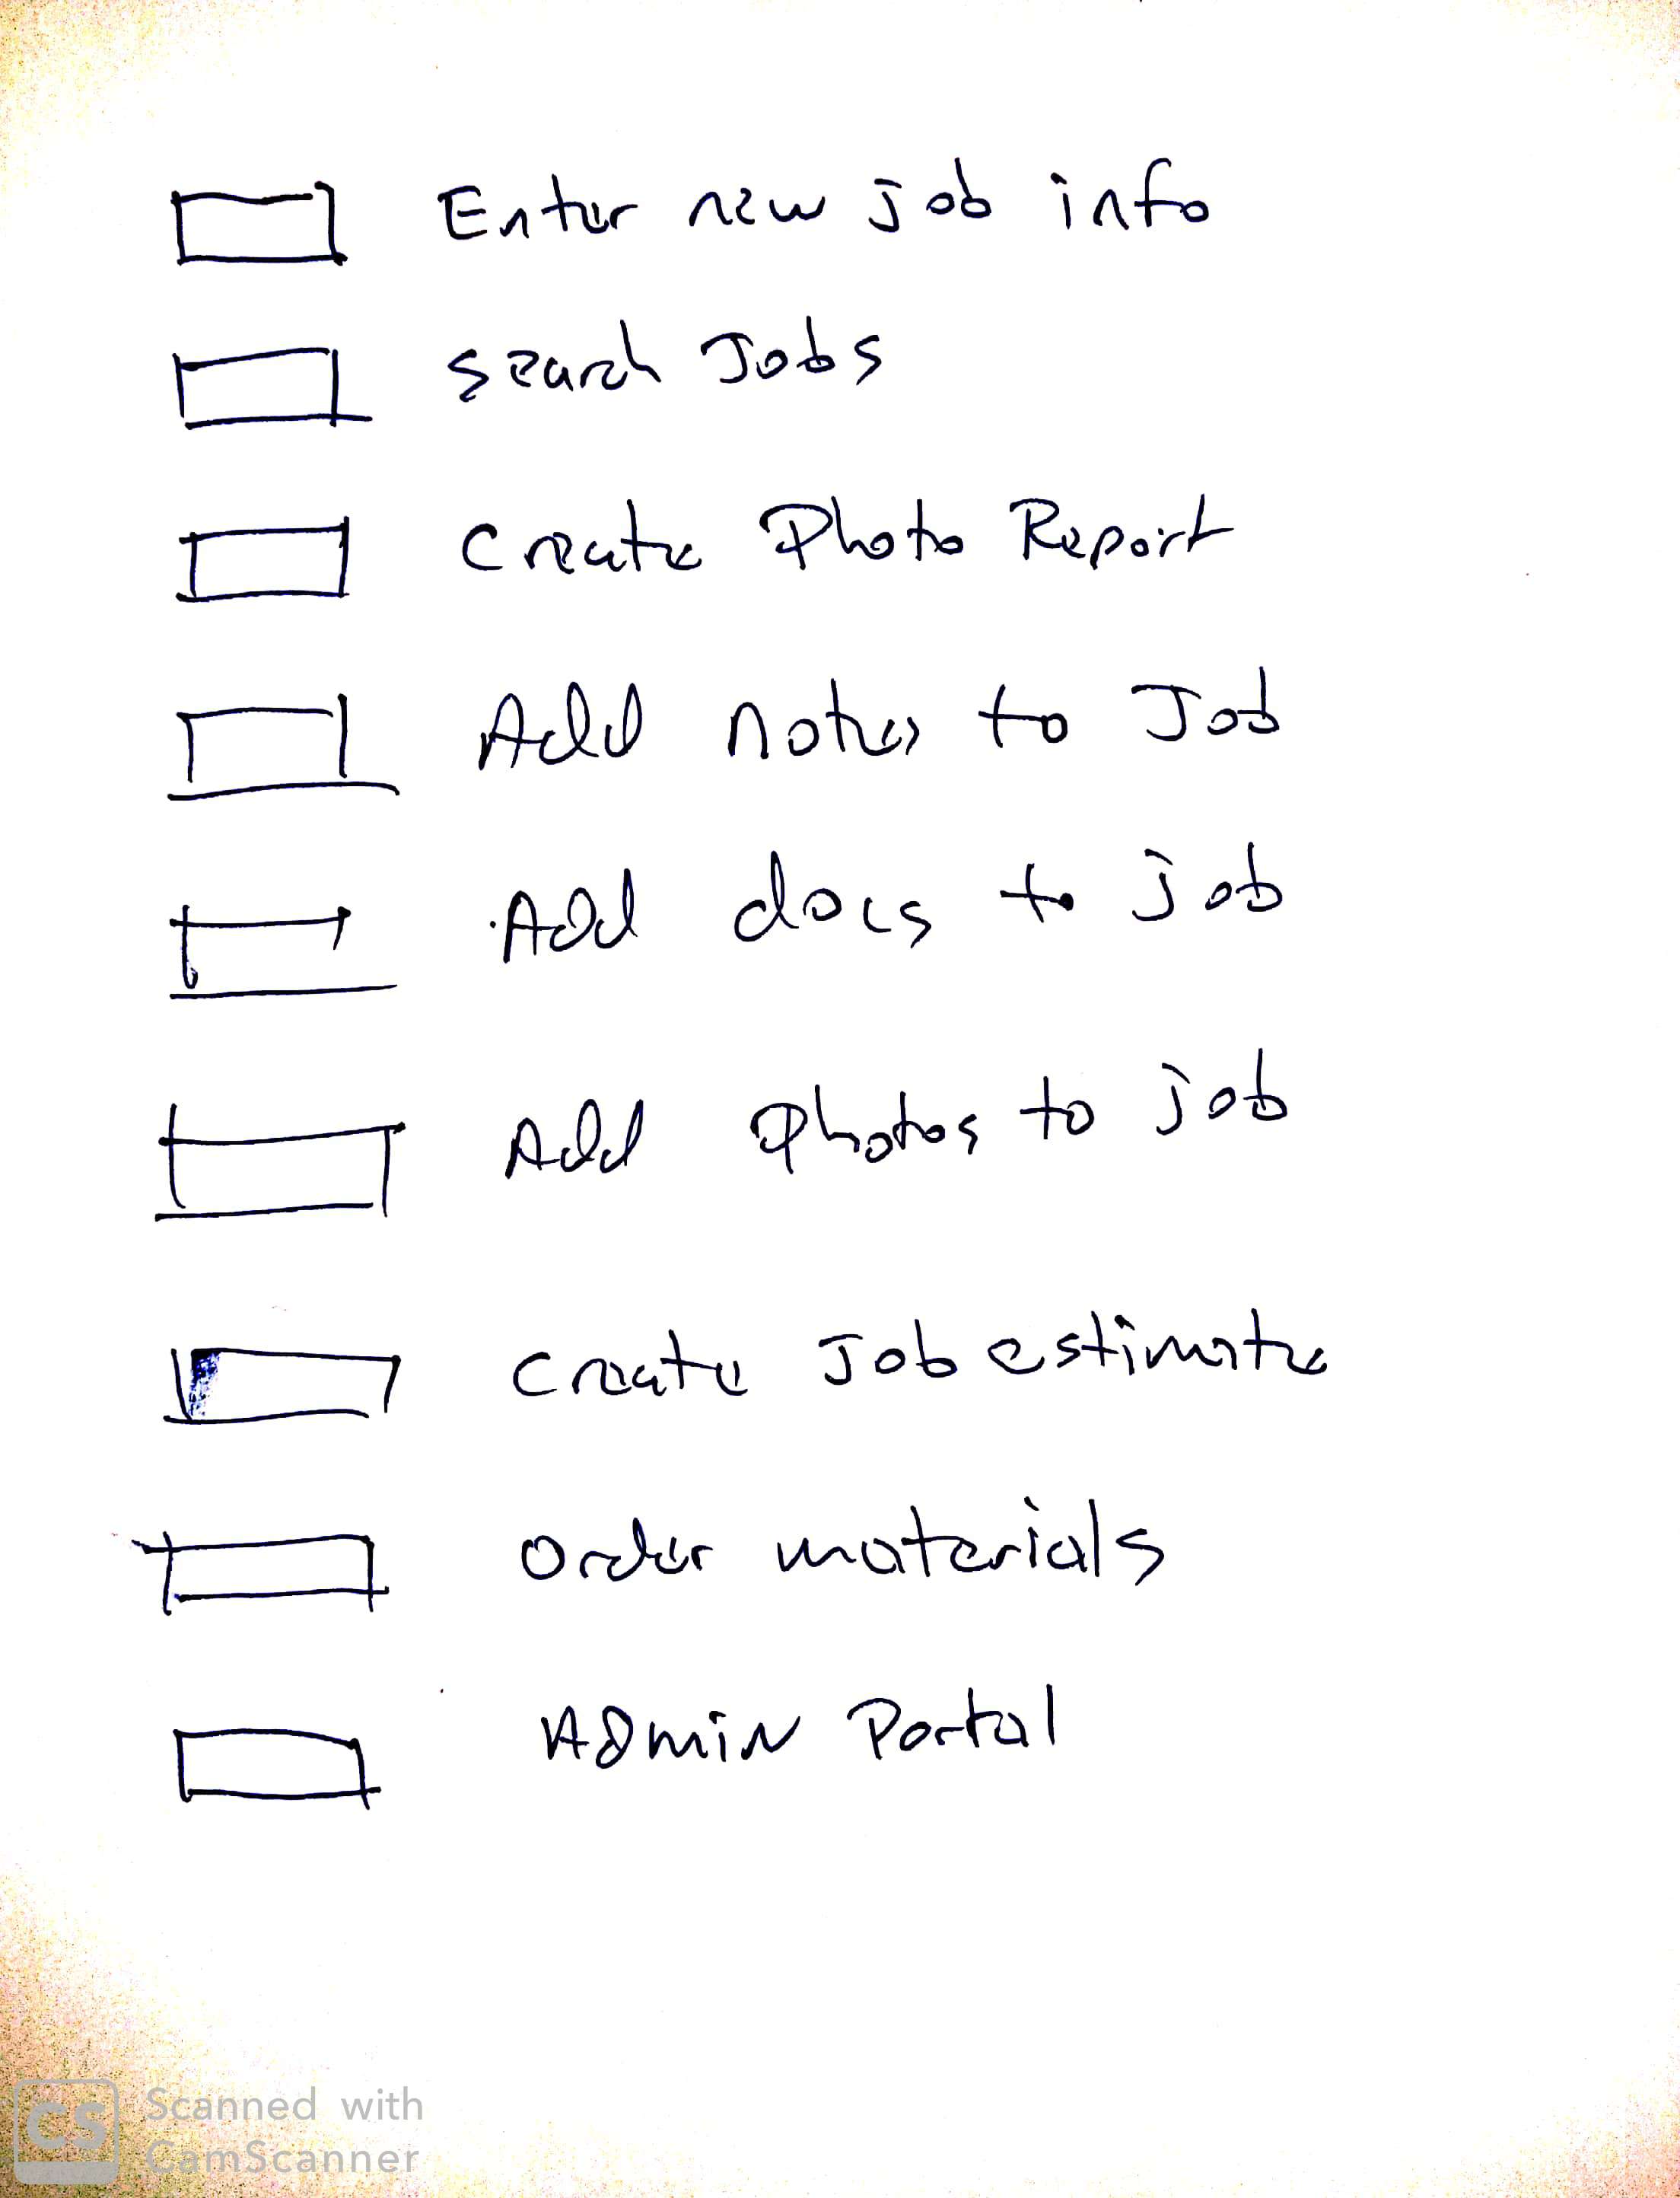 Enter new job info
search Jobs
Create Photo Report
Add notes to Job
Add docs to job
Add Photos to job
Create Job estimate
Order materials
Admin Portal
CS
Scanned with
CamScanner